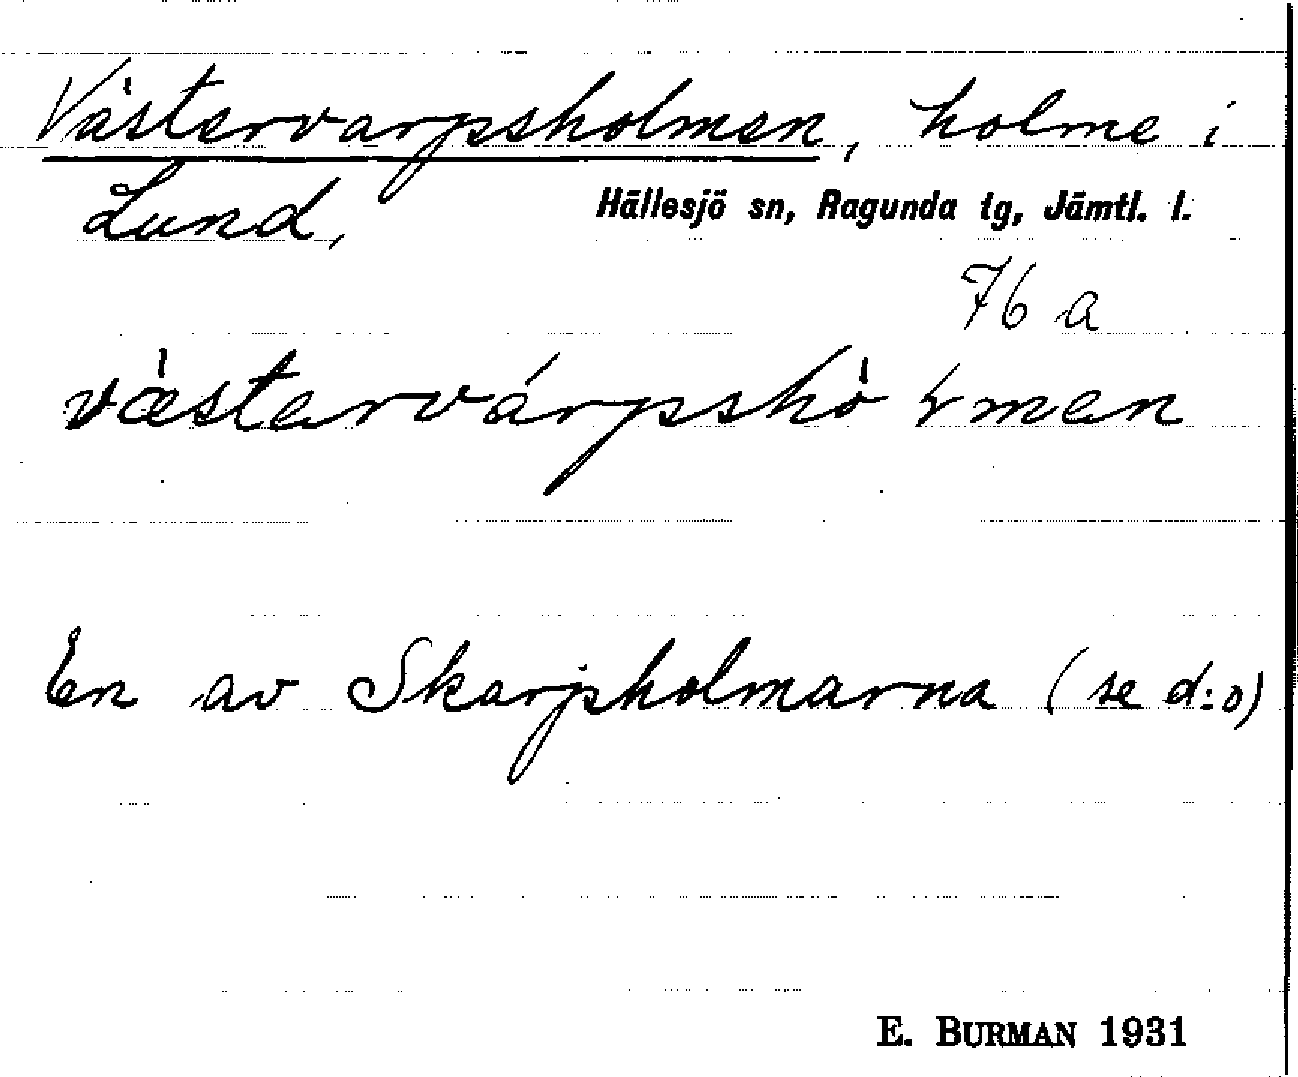 Västervarpsholmen, holme i
Lund, Hällesjö sn, Ragunda tg, Jämtl. l.
76 a
væ̀stervárpshòɽmen
En av Skarpholmarna (se d:o)
E. BURMAN 1931